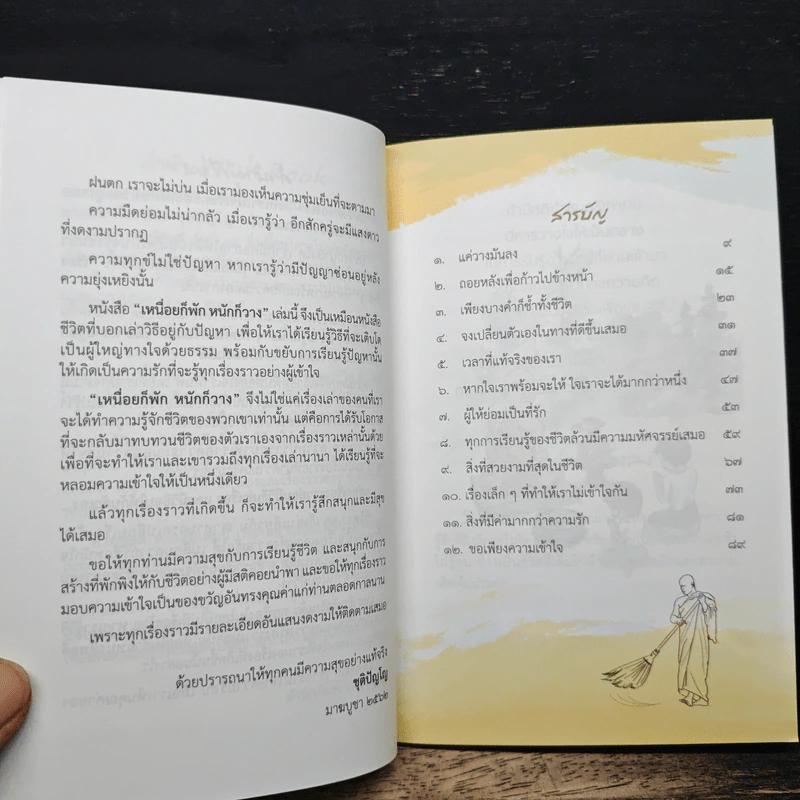 ฝนตก เราจะไม่บ่น เมื่อเรามองเห็นความชุ่มเย็นที่จะตามมา
ความมืดย่อมไม่น่ากลัว เมื่อเรารู้ว่า อีกสักครู่จะมีแสงดาว
ที่งดงามปรากฏ
ความทุกข์ไม่ใช่ปัญหา หากเรารู้ว่ามีปัญญาซ่อนอยู่หลัง
ความยุ่งเหยิงนั้น
หนังสือ “เหนื่อยก็พัก หนักก็วาง” เล่มนี้ จึงเป็นเหมือนหนังสือ
ชีวิตที่บอกเล่าวิธีอยู่กับปัญหา เพื่อให้เราได้เรียนรู้วิธีที่จะเติบโต
เป็นผู้ใหญ่ทางใจด้วยธรรม พร้อมกับขยับการเรียนรู้ปัญหานั้น
ให้เกิดเป็นความรักที่จะรู้ทุกเรื่องราวอย่างผู้เข้าใจ
“เหนื่อยก็พัก หนักก็วาง” จึงไม่ใช่แค่เรื่องเล่าของคนที่เรา
จะได้ทำความรู้จักชีวิตของพวกเขาเท่านั้น แต่คือการได้รับโอกาส
ที่จะกลับมาทบทวนชีวิตของตัวเราเองจากเรื่องราวเหล่านั้นด้วย
เพื่อที่จะทำให้เราและเขารวมถึงทุกเรื่องเล่านานา ได้เรียนรู้ที่จะ
หลอมความเข้าใจให้เป็นหนึ่งเดียว
แล้วทุกเรื่องราวที่เกิดขึ้น ก็จะทำให้เรารู้สึกสนุกและมีสุข
ได้เสมอ
ขอให้ทุกท่านมีความสุขกับการเรียนรู้ชีวิต และสนุกกับการ
สร้างที่พักพิงให้กับชีวิตอย่างผู้มีสติคอยนำพา และขอให้ทุกเรื่องราว
มอบความเข้าใจเป็นของขวัญอันทรงคุณค่าแก่ท่านตลอดกาลนาน
เพราะทุกเรื่องราวมีรายละเอียดอันแสนงดงามให้ติดตามเสมอ
ด้วยปรารถนาให้ทุกคนมีความสุขอย่างแท้จริง
ชุติปัญโญ
มาฆบูชา ๒๕๖๒
สารบัญ
๑. แค่วางมันลง ๙
๒. ถอยหลังเพื่อก้าวไปข้างหน้า ๑๕
๓. เพียงบางคำก็ช้ำทั้งชีวิต ๒๓
๔. จงเปลี่ยนตัวเองในทางที่ดีขึ้นเสมอ ๓๑
๕. เวลาที่แท้จริงของเรา ๓๗
๖. หากใจเราพร้อมจะให้ ใจเราจะได้มากกว่าหนึ่ง ๔๗
๗. ผู้ให้ย่อมเป็นที่รัก ๕๓
๘. ทุกการเรียนรู้ของชีวิตล้วนมีความมหัศจรรย์เสมอ ๕๙
๙. สิ่งที่สวยงามที่สุดในชีวิต ๖๗
๑๐. เรื่องเล็ก ๆ ที่ทำให้เราไม่เข้าใจกัน ๗๓
๑๑. สิ่งที่มีค่ามากกว่าความรัก ๘๑
๑๒. ขอเพียงความเข้าใจ ๘๙